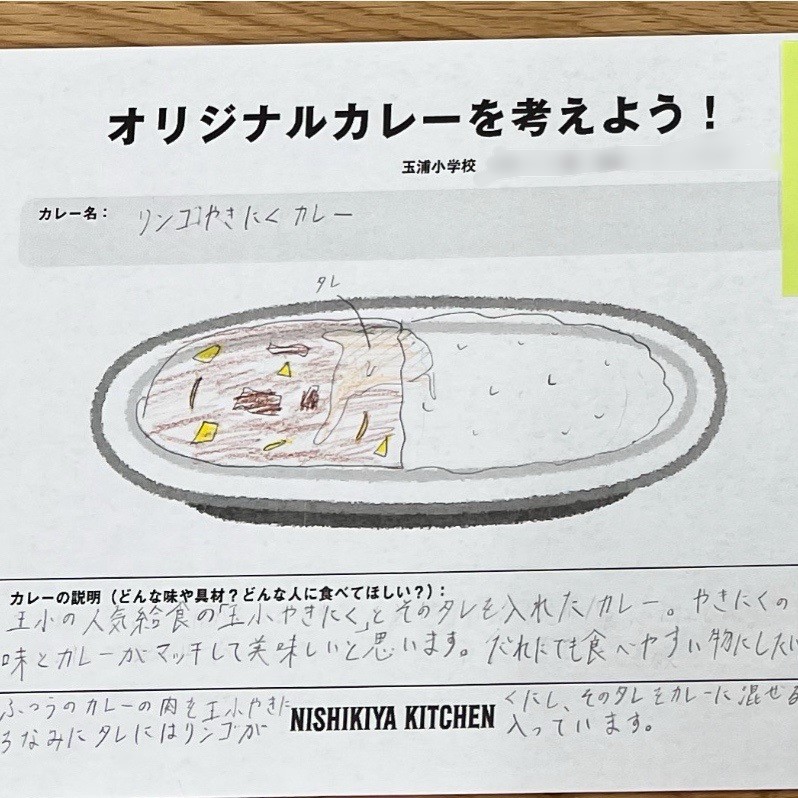 オリジナルカレーを考えよう！
玉浦小学校
カレー名： リンゴやきにくカレー
タレ
カレーの説明（どんな味や具材？どんな人に食べてほしい？）：
玉小の人気給食の「玉小やきにく」とそのタレを入れたカレー。やきにくの
味とカレーがマッチして美味しいと思います。だれにでも食べやすい物にしたい
ふつうのカレーの肉を玉小やきに
くにし、そのタレをカレーに混ぜる
ちなみにタレにはリンゴが
入っています。
NISHIKIYA KITCHEN